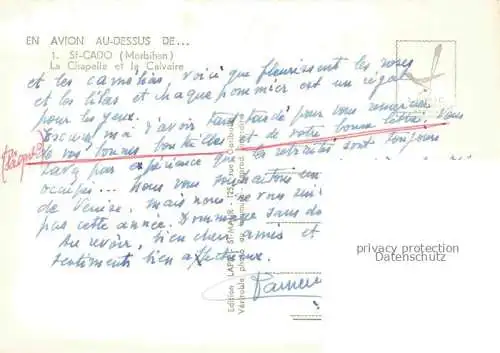 EN AVION AU-DESSUS DE...
1. ST-CADO (Morbihan)
La Chapelle et le Calvaire
et les camélias, voici que fleurissent les roses
et les lilas et chaque pommier est un régal
pour les yeux.
Excusez moi d'avoir tant tardé pour vous remercier
de vos bonnes et de votre bonne lettre. Vous
savez par expérience que les retraités sont toujours
occupés... Nous vous souhaitons un
de Venise, mais nous ne vous
pas cette année. Dommage sans
Au revoir, bien chers amis et
sentiments bien affectueux.
(Pâques)
Edition LAPIE ST-MAUR
Véritable photo au
privacy protection
Datenschutz